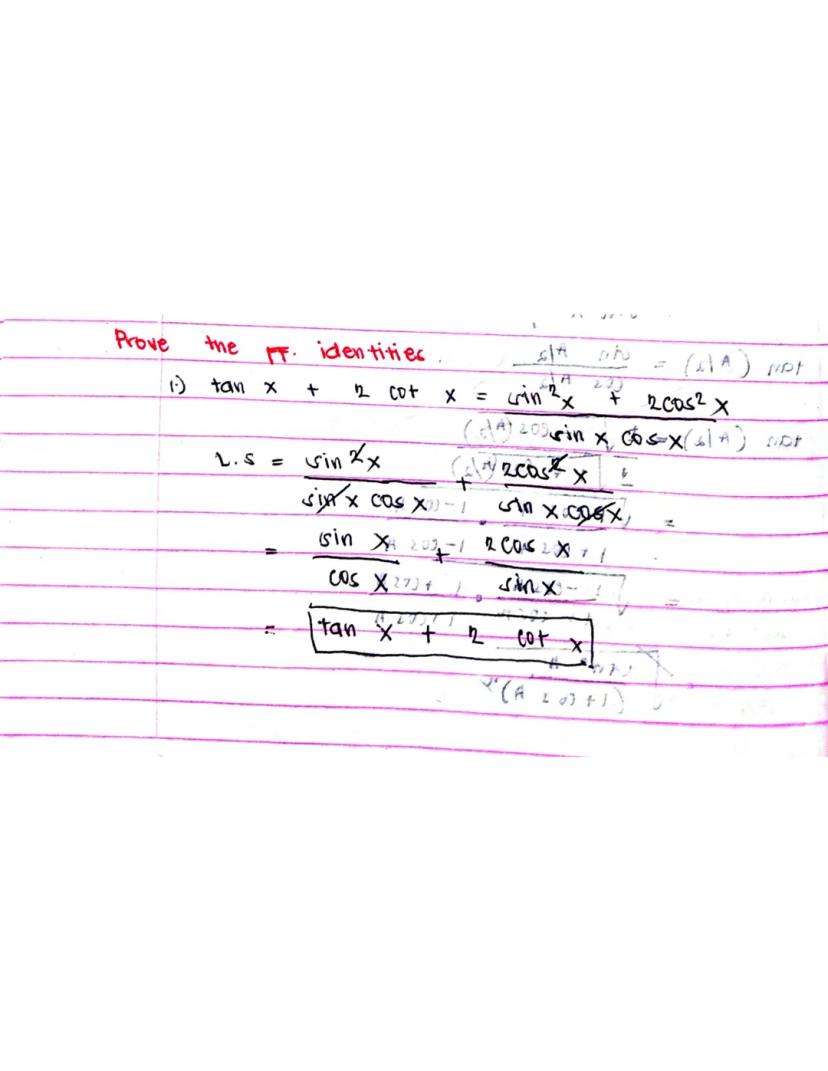 Prove the ff. identities.
1.) tan x + 2 cot x = sin²x + 2cos²x
sin x cos x
L.S = sin²x + 2cos²x
sin x cos x sin x cos x
= sin x + 2 cos x
cos x sin x
= tan x + 2 cot x